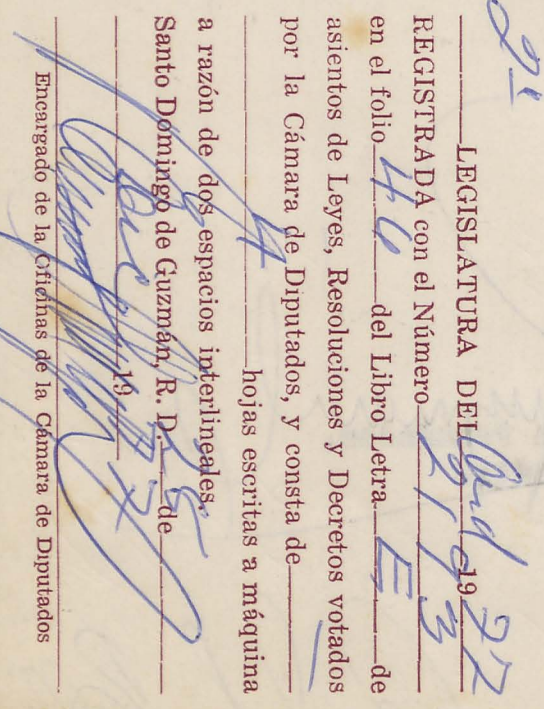 2ª LEGISLATURA DEL Ord 1977
REGISTRADA con el Número 2193
en el folio 46 del Libro Letra E de
asientos de Leyes, Resoluciones y Decretos votados
por la Cámara de Diputados, y consta de
4 hojas escritas a máquina
a razón de dos espacios interlineales.
Santo Domingo de Guzmán, R. D. 26 de
1977
Encargado de la Oficinas de la Cámara de Diputados